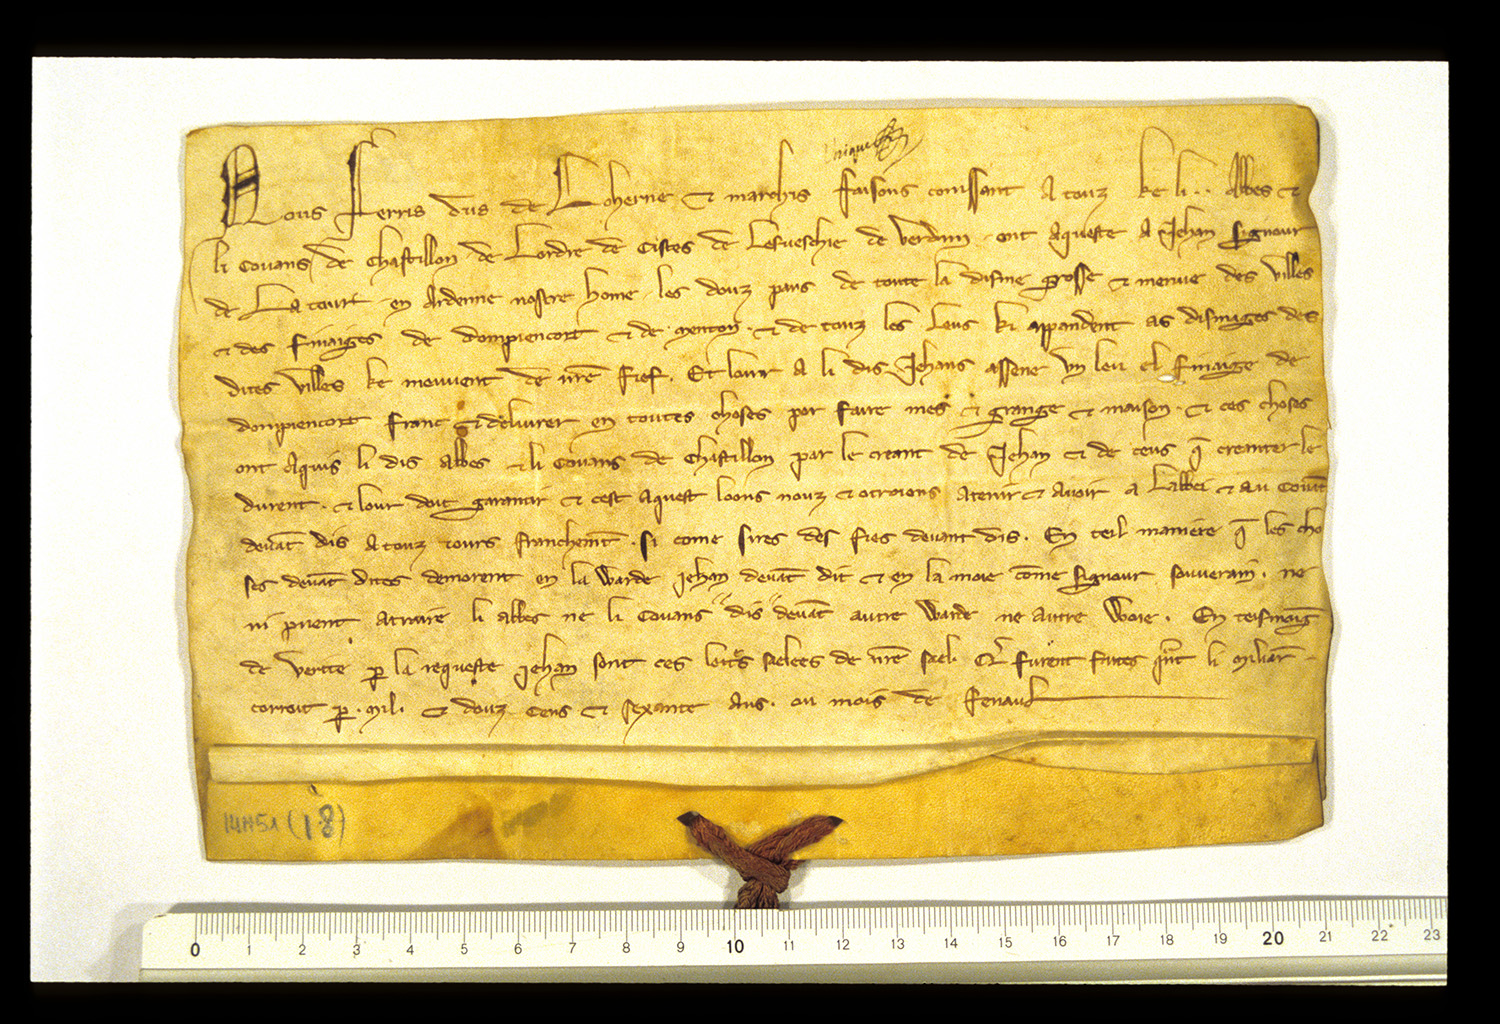 Nous Ferris dus de Loherne & marchis faisons conissant a touz ke li .. abbes &
li Covans de Chastillon de Lordre de Cistes de Leveschie de Verdun . ont aqueste a Jehan signour
de La tour en Ardenne nostre home . les douz pars de toute la disme grosse & menue des villes
& des finaiges de dompiencort & de menton . & de touz les leus ki apandent as dismages des
dites villes ke meuvent de nr̄e fief . Et lour a li dis Jehans assene un leu el finaige de
dompiencort franc & delivrer en toutes choses por faire mes & grange & maison . & ces choses
ont aquis li dis abbes & li Covans de Chastillon par le creant de Jehan & de ceus q̄ creanter le
durent . & lour doit garantir & cest aquest loons nouz & otroiens a tenir & avoir a Labbei & au Covāt
devāt dis a touz jours franchemt̄ . si come sires des fies devant dis . En teil maniere q̄ les cho
ses devāt dites demorent en la warde Jehan devāt dit & en la moie cōme signour souverain . ne
ni puent atraire li abbes ne li Covans dis devāt autre warde ne autre voie . En tesmoig
de verite p la requeste Jehan sont ces letr̄s saelees de nr̄e sael . furent faites qn̄t li miliair̄
corroit p . mil . & douz cens & sexante ans . ou mois de fenaul
14H51 (18)
0 1 2 3 4 5 6 7 8 9 10 11 12 13 14 15 16 17 18 19 20 21 22 23